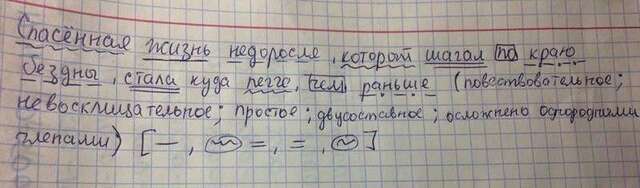 Спасённая жизнь недоросля, который шагал по краю
бездны, стала куда легче, чем раньше (повествовательное;
невосклицательное; простое; двусоставное; осложнено однородными
членами) [—, (~) =, =, (~)]